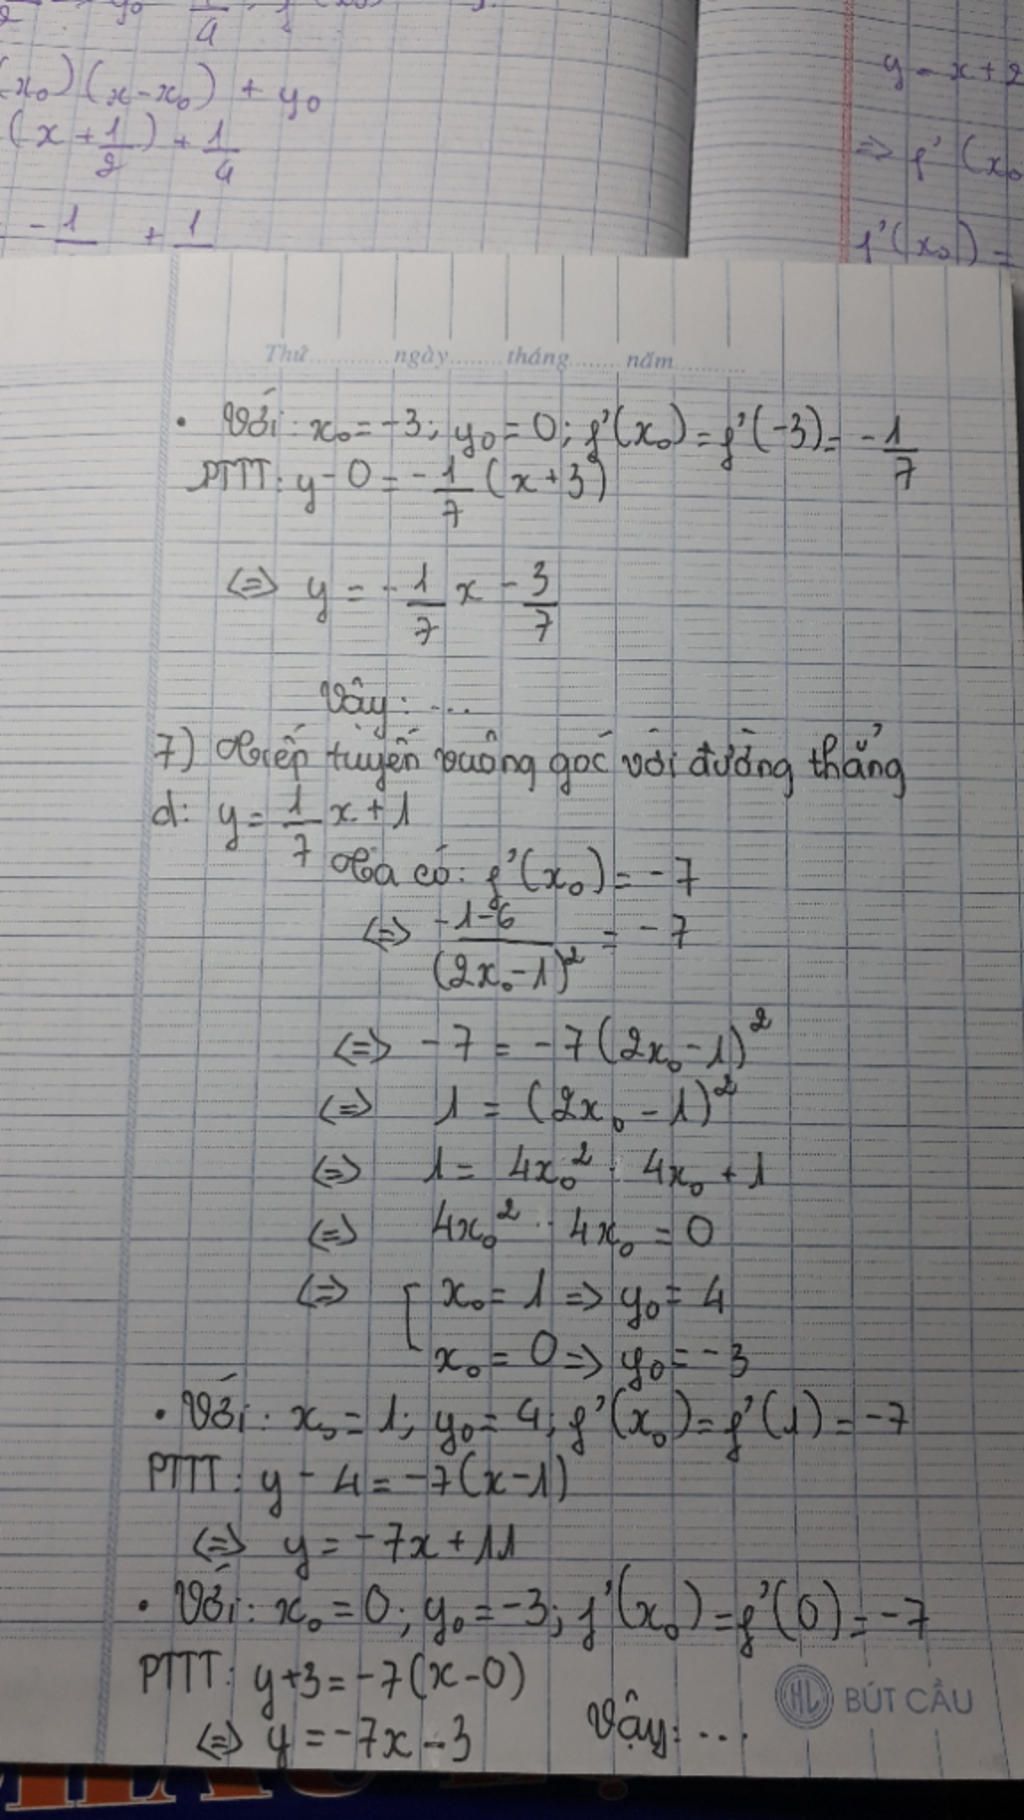 (x₀)(x-x₀) + y₀
(x + 1/2) + 1/4
- 1 + 1
y = x + 2
=> f'(x₀
f'(x₀) =
Thứ.........ngày.......tháng.......năm..........
• Với: x₀ = -3; y₀ = 0; f'(x₀) = f'(-3) = -1/7
PTTT: y - 0 = -1/7 (x+3)
<=> y = -1/7 x - 3/7
Vây: ...
7) Tiếp tuyến vuông góc với đường thẳng
d: y = 1/7 x + 1
Ta có: f'(x₀) = -7
<=> (-1-6)/(2x₀-1)² = -7
<=> -7 = -7(2x₀-1)²
<=> 1 = (2x₀-1)²
<=> 1 = 4x₀² - 4x₀ + 1
<=> 4x₀² - 4x₀ = 0
<=> [ x₀ = 1 => y₀ = 4
x₀ = 0 => y₀ = -3
• Với: x₀ = 1; y₀ = 4; f'(x₀) = f'(1) = -7
PTTT: y - 4 = -7(x-1)
<=> y = -7x + 11
• Với: x₀ = 0; y₀ = -3; f'(x₀) = f'(0) = -7
PTTT: y+3 = -7(x-0)
<=> y = -7x - 3
Vậy: ...
HL BÚT CẦU